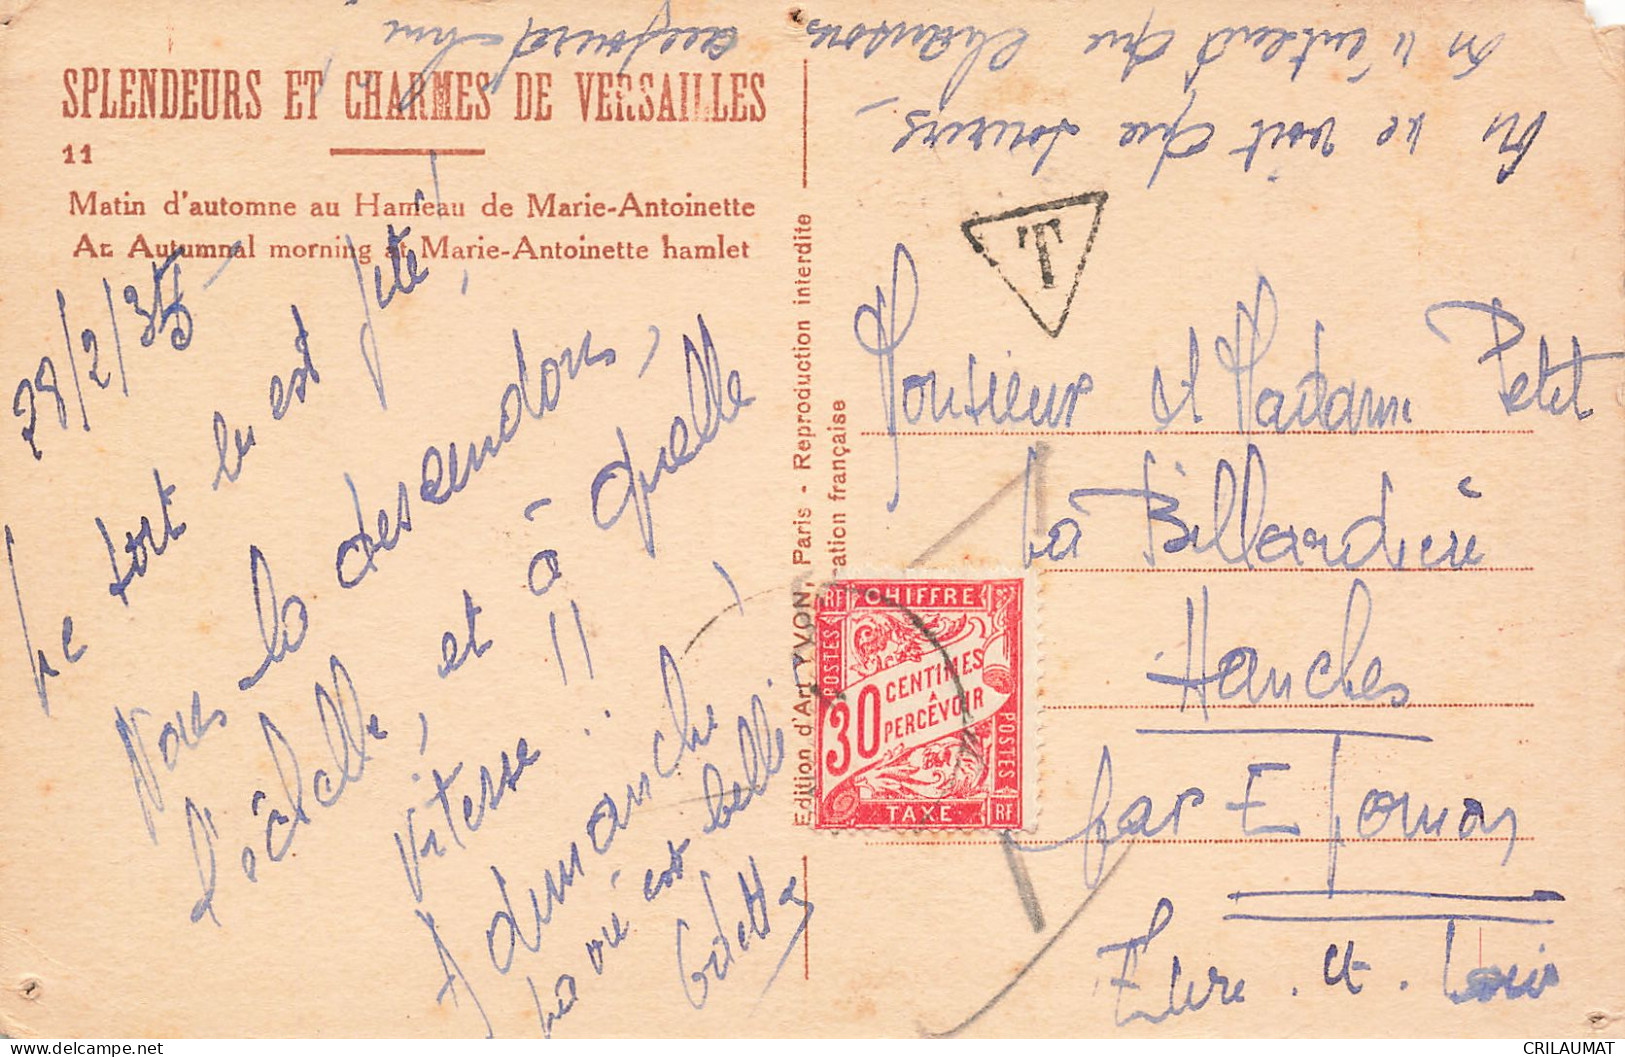 SPLENDEURS ET CHARMES DE VERSAILLES
11
Matin d'automne au Hameau de Marie-Antoinette
An Autumnal morning at Marie-Antoinette hamlet
28/2/35
Le sort en est jeté,
Nous la descendons,
l'échelle, et à quelle
vitesse !!
A dimanche !
La vie est belle
Odette
On ne voit que sourires -
On n'entend que chansons
aujourd'hui
Edition d'Art YVON, Paris - Reproduction interdite
ration française
T
Monsieur et Madame Petit
La Billardière
Hanches
par Epernon
Eure . et . Loir
RF CHIFFRE
POSTES
30 CENTIMES
A
PERCEVOIR
POSTES
TAXE RF
CRILAUMAT